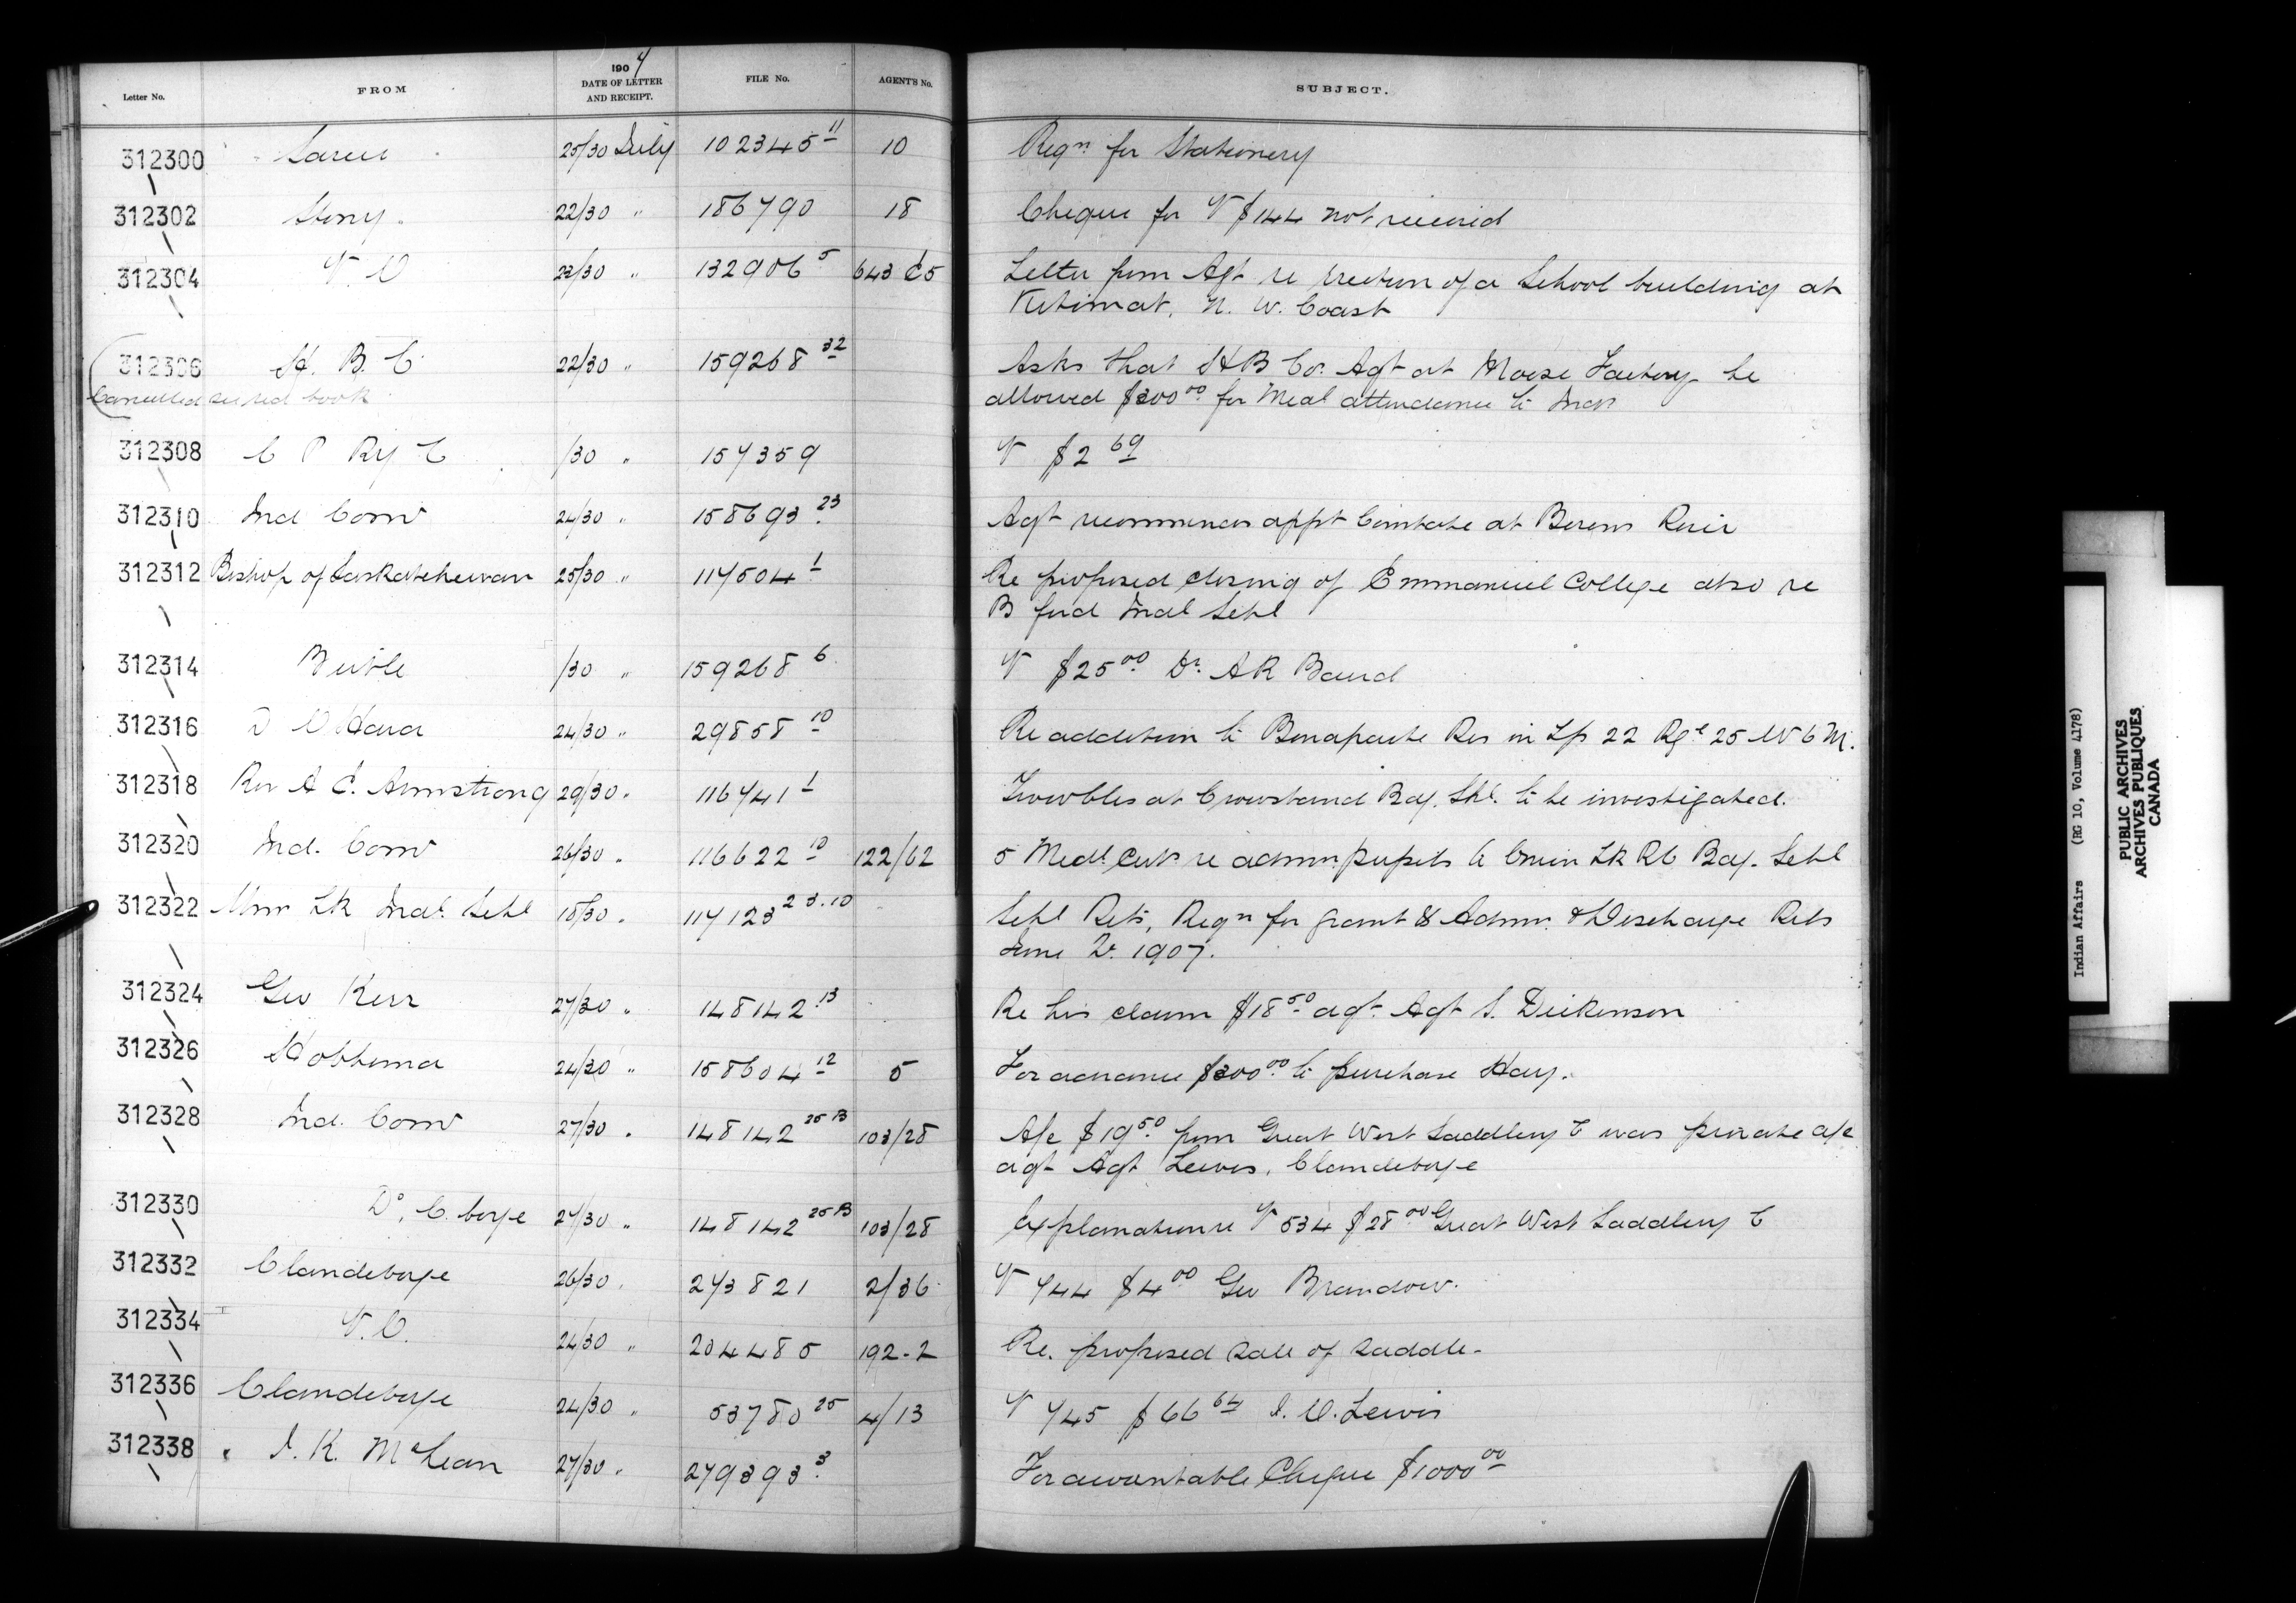 Letter No. FROM 1907 DATE OF LETTER AND RECEIPT. FILE No. AGENT'S No. SUBJECT.
312300 25/30 July 102345 11 10 Reqn for Stationery
312302 Stony. 22/30 " 186790 18 Cheque for V $144 not received
312304 V. O 23/30 " 132906 5 643 C5 Letter from Agt re erection of a School building at
Kitimat, N. W. Coast
312306 H. B. C 22/30 " 159268 32 Asks that H B Co. Agt at Moose Factory be
Cancelled see red book allowed $300 00 for Medl attendance to Inds
312308 C P Ry C /30 " 157359 V $2 69
312310 Ind Comr 24/30 " 158693 23 Agt recommends appt Constable at Berens River
312312 Bishop of Saskatchewan 25/30 " 117504 1 Re proposed closing of Emmanuel College also re
B ford Indl Schl
312314 Birtle /30 " 159268 6 V $25 00 Dr. A R Baird
312316 D O'Hara 24/30 " 29858 10 Re addition to Bonaparte Res in Tp 22 Rge 25 W 6 M.
312318 Rev A C. Armstrong 29/30 " 116741 1 Troubles at Crowstand Bdg. Shl. to be investigated.
312320 Ind. Comr 26/30 " 116622 10 122/62 5 Medl Certs re admn. pupils to Onion Lk RC Bdg. Schl
312322 Lk Indl. Schl 18/30 " 117123 2 3.10 Schl Rets, Reqn for grant & Admn. & Discharge Rets
June Qr. 1907.
312324 Geo Kerr 27/30 " 148142 13 Re his claim $18 50 agt. Agt S. Dickenson
312326 Hobbema 24/30 " 158604 12 5 For advance $300 00 to purchase Hay.
312328 Ind. Comr 27/30 " 148142 25 B 103/28 A/c $19 50 from Great West Saddlery C was private a/c
agt Agt Lewis, Clandeboye
312330 Do, C. boye 27/30 " 148142 25 B 103/28 Explanation re V 534 $28 00 Great West Saddlery C
312332 Clandeboye 26/30 " 273821 2/36 V 744 $4 00 Geo Brandow.
312334 V. O. 24/30 " 204485 192-2 Re. proposed sale of saddle.
312336 Clandeboye 24/30 " 53780 25 4/13 V 745 $66 64 J. O. Lewis
312338 J. K. McLean 27/30 " 279393 3 For accountable Cheque $1000 00
Indian Affairs (RG 10, Volume 4178)
PUBLIC ARCHIVES
ARCHIVES PUBLIQUES
CANADA